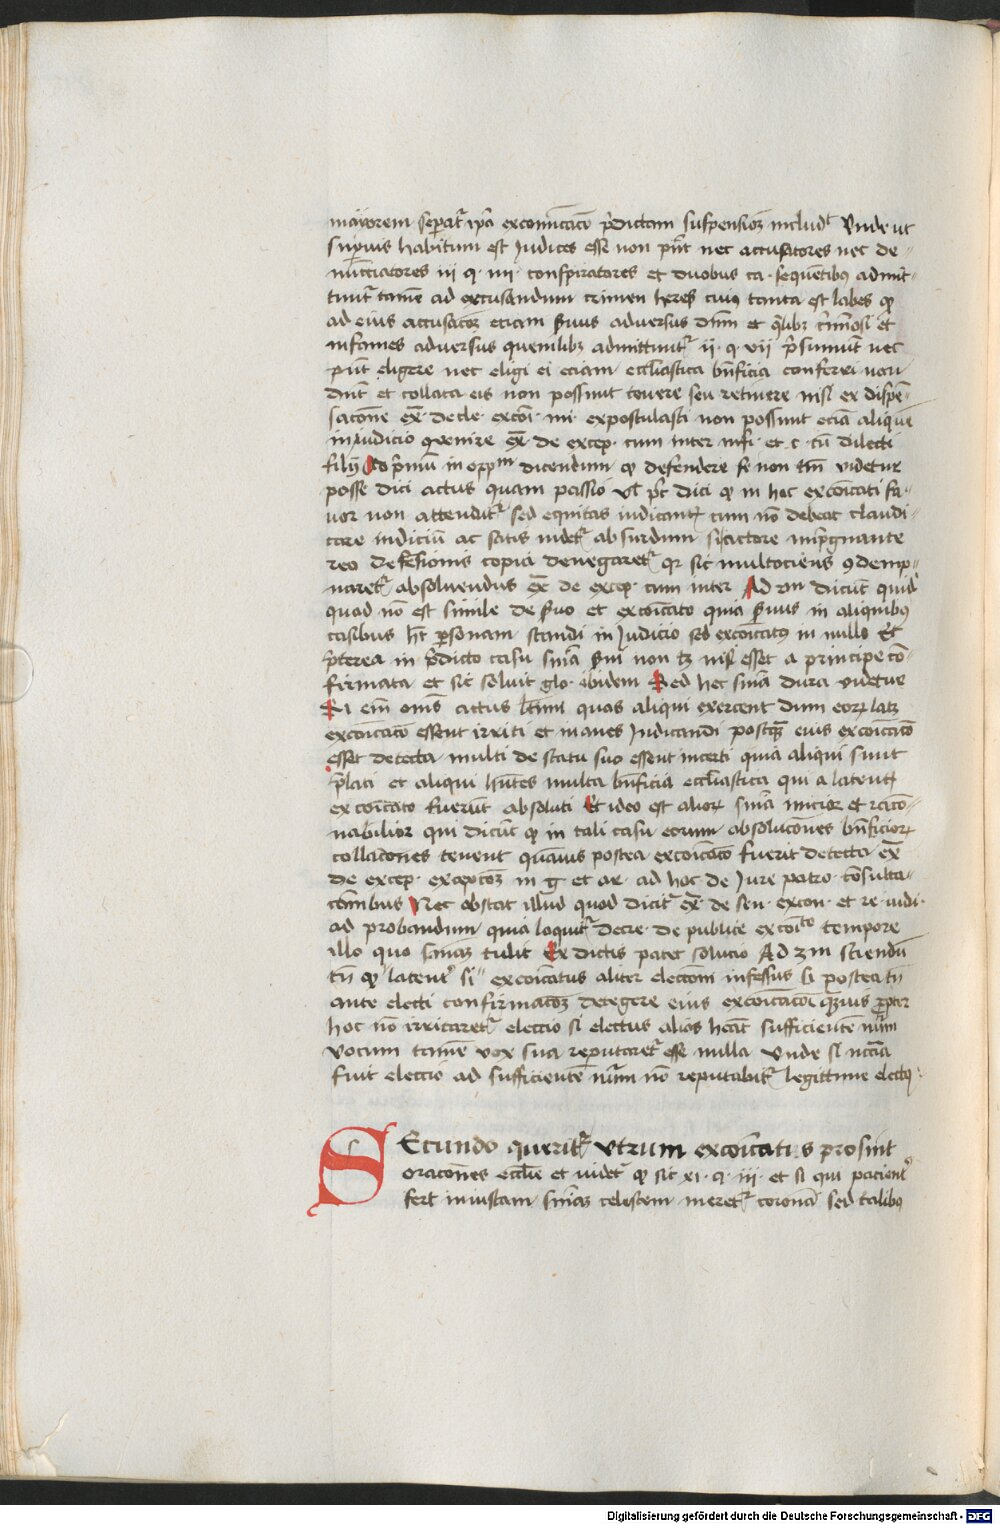 mayorem seperat᷑ ip̄a excom̄icacō p̄dictam suspensiōꝫ includꝰ Unde ut
sup̄ius habitum est Judices esse non pn̄t nec accusatores nec de-
nūcciatores iii q. iiii. conspiratores et duobus ca. sequētibꝰ admit-
tūnt᷑ tamē ad excusandum crimen heresꝭ cuiꝰ tanta est labes ꝙ
ad eius accusatōꝫ etiam s̄uus adversus dn̄m et q̄libꝫ c̄m̄osꝰ et
infames adversus quemlibꝫ admittunt᷑ ii. q. vii p̄sumūt nec
pn̄t eligere nec eligi ei etiam eccl̄iastica bn̄ficia conferri nari
dn̄t et collata eis non possunt tenere seu retinere nisi ex dispē-
sacōne ex̄. de cle. excōi. mi. expostulasti non possunt eciā aliquē
in iudicio ꝯvenire ex̄. de excep. cum inter. infi. et. c. cū dilecti
filij Ad p̄mū in oppᵐ dicendum ꝙ defendere se non tm̄ videtur
posse dici actus quam passio vl̄ pt̄ dici ꝙ in hoc excōicati fa-
uor non attendit᷑ sed equitas iudicantꝭ cum nō debeat claudi-
care iudiciū ac satis videt᷑ absurdum si actore inpugnante
reo defensionis copia denegaret᷑ qꝛ sic multociens ꝯdemp-
naret᷑ absoluendus ex̄ de excep. cum inter Ad 2m dicūt quidᷓ
quod nō est simile de s̄uo et excōicato quia s̄uus in aliquibꝰ
casibus hꝫ personam standi in Judicio sed excōicatꝰ in nullo Et
p̄terea in p̄dicto casu sn̄ia s̄ui non tꝫ nisi esset a principe cō-
firmata et sic soluit glo. ibidem Sed hec sn̄ia dura videtur
Si em̄ om̄s actus l̄timi quos aliqui exercent dum eoꝝ latꝫ
excōicacō essent irriti et inanes Judicandi postꝗ̄ eius excōicacō
esset detecta multi de statu suo essent incerti quia aliqui sunt
p̄lati et aliqui hn̄tes multa bn̄ficia eccl̄iastica qui a latentꝭ
excōicato fuerūt absoluti Et ideo est alioꝝ sn̄ia micior et racō-
nabilior qui dicūt ꝙ in tali casu eorum absolucōnes bn̄ficioꝝ
collacōnes tenent quāuis postea excōicacō fuerit detecta ex̄
de excep. excepcōꝫ in g et ar. ad hoc de Jure patro. cōsulta-
cōnibus Nec obstat illud quod dicit᷑ ex̄. de sen. excon. et re iudi.
ad probandum quia loquit᷑ decre. de publice excōicᵗᵒ tempore
illo quo sn̄iaꝫ tulit Ex dictis patet solucio Ad 3m sciendū
tn̄ ꝙ latentꝰ si excōicatus aliter eleccōni infessus ꝉ postea tn̄
ante electi confirmacōꝫ detegere eius excōicacōi quāuis ꝓpter
hoc nō irritaret᷑ eleccio si electus alias heat sufficientē nūm
vocum tamē vox sua reputaret᷑ esse nulla Unde si nccīa
fuit eleccio ad sufficientē nūm nō reputabit᷑ legittime electꝰ.
SEcundo querit᷑ Utrum excōicatis prosint
oracōnes eccl̄ie et videt᷑ ꝙ sic xi. q. iii. et si qui pacientꝰ
fert iniustam sn̄iaꝫ celestem meret᷑ coronā sed talibꝰ
Digitalisierung gefördert durch die Deutsche Forschungsgemeinschaft - DFG